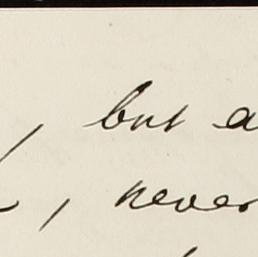 , but a
, never